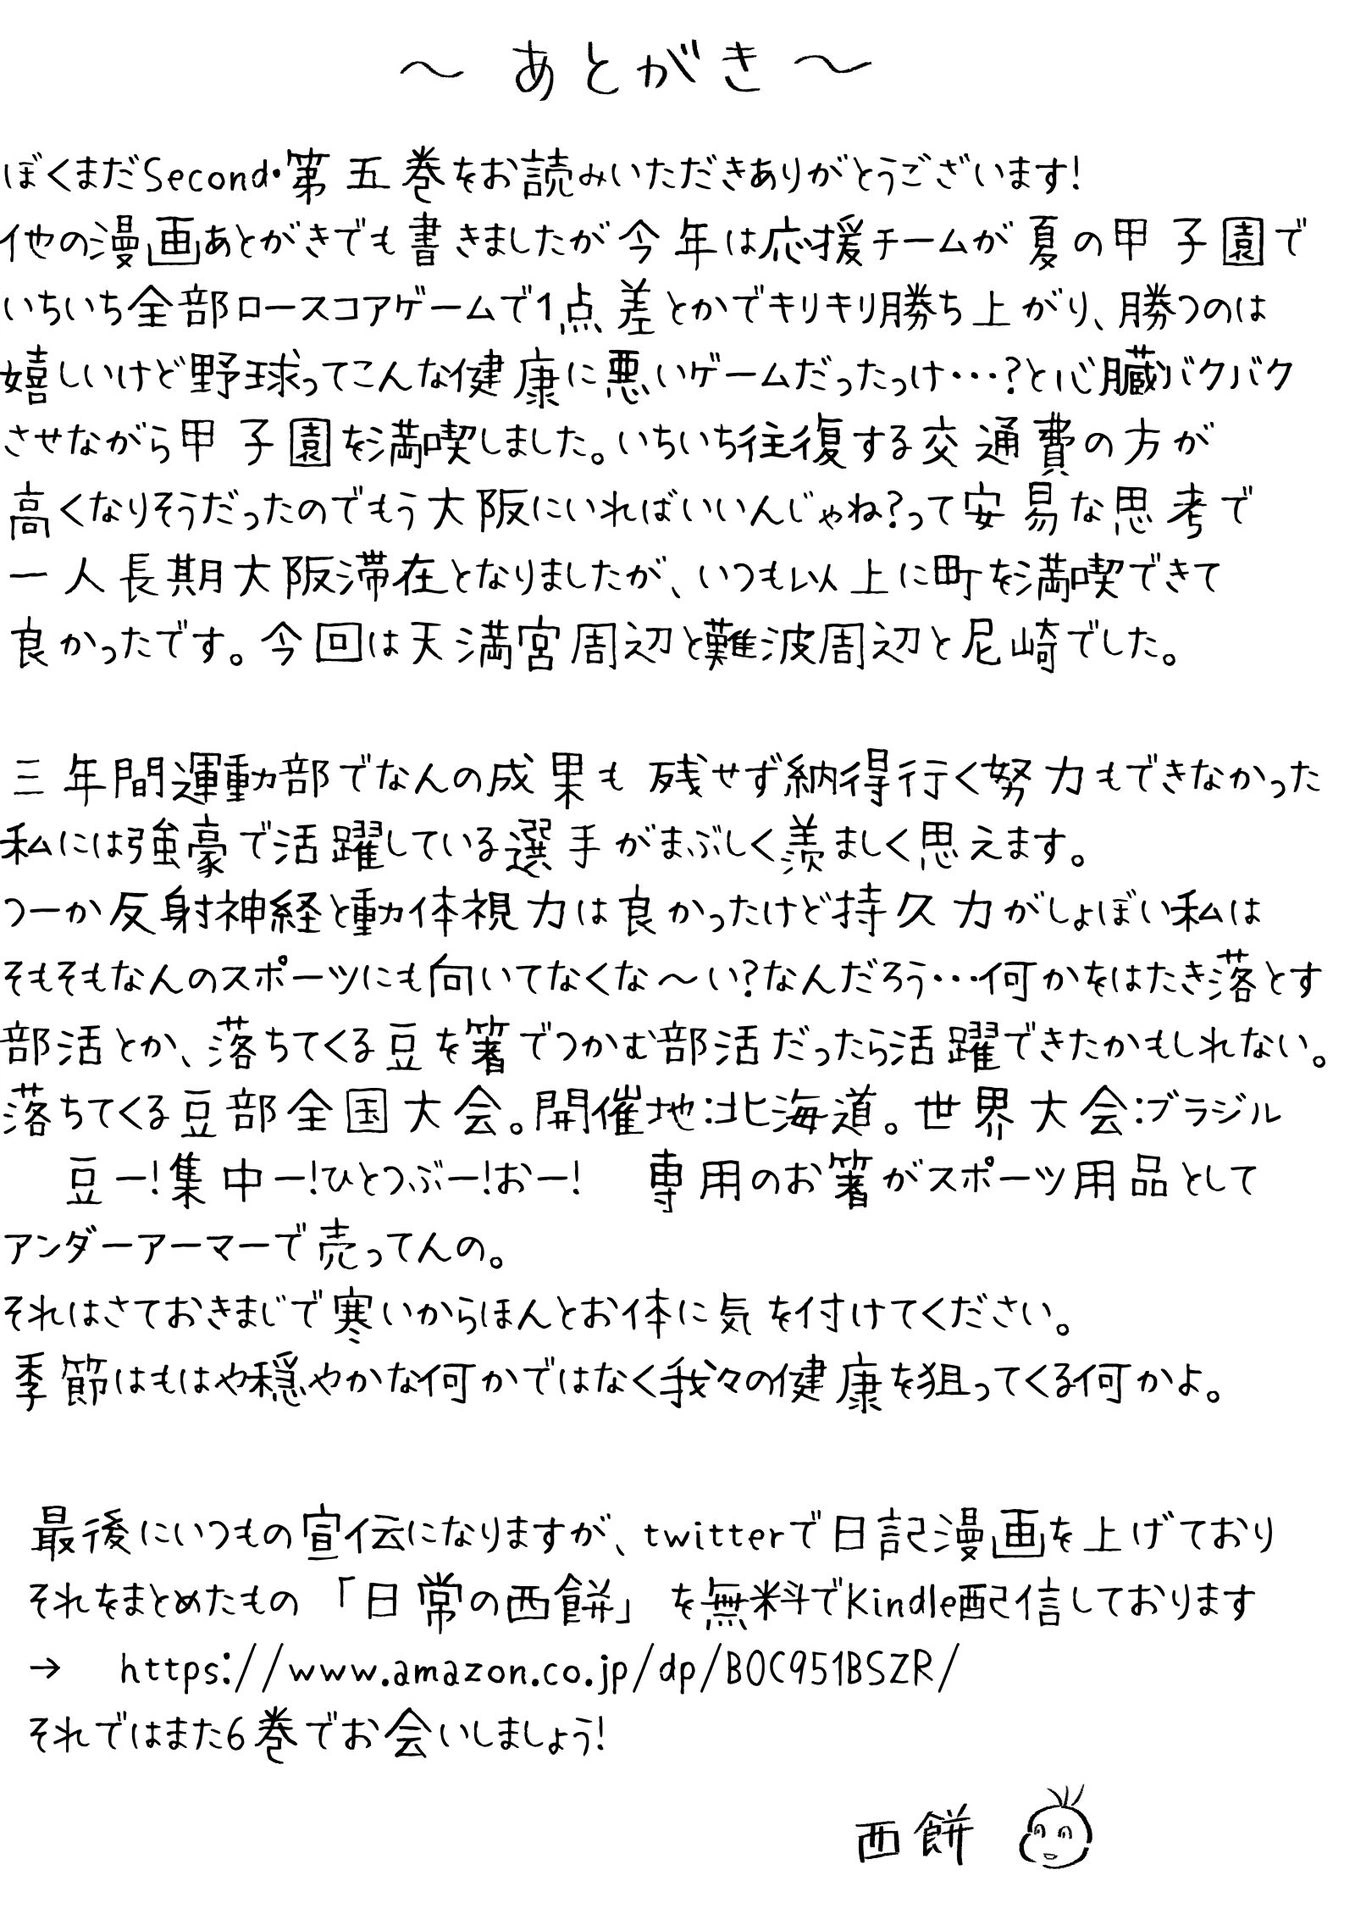 ～ あとがき ～
ぼくまだSecond・第五巻をお読みいただきありがとうございます!
他の漫画あとがきでも書きましたが今年は応援チームが夏の甲子園で
いちいち全部ロースコアゲームで1点差とかでキリキリ勝ち上がり、勝つのは
嬉しいけど野球ってこんな健康に悪いゲームだったっけ…?と心臓バクバク
させながら甲子園を満喫しました。いちいち往復する交通費の方が
高くなりそうだったのでもう大阪にいればいいんじゃね?って安易な思考で
一人長期大阪滞在となりましたが、いつも以上に町を満喫できて
良かったです。今回は天満宮周辺と難波周辺と尼崎でした。
三年間運動部でなんの成果も残せず納得行く努力もできなかった
私には強豪で活躍している選手がまぶしく羨ましく思えます。
つーか反射神経と動体視力は良かったけど持久力がしょぼい私は
そもそもなんのスポーツにも向いてなくな～い?なんだろう…何かをはたき落とす
部活とか、落ちてくる豆を箸でつかむ部活だったら活躍できたかもしれない。
落ちてくる豆部全国大会。開催地:北海道。世界大会:ブラジル
豆ー!集中ー!ひとつぶー!おー! 専用のお箸がスポーツ用品として
アンダーアーマーで売ってんの。
それはさておきまじで寒いからほんとお体に気を付けてください。
季節はもはや穏やかな何かではなく我々の健康を狙ってくる何かよ。
最後にいつもの宣伝になりますが、twitterで日記漫画を上げており
それをまとめたもの「日常の西餅」を無料でKindle配信しております
→ https://www.amazon.co.jp/dp/B0C951BSZR/
それではまた6巻でお会いしましょう!
西餅